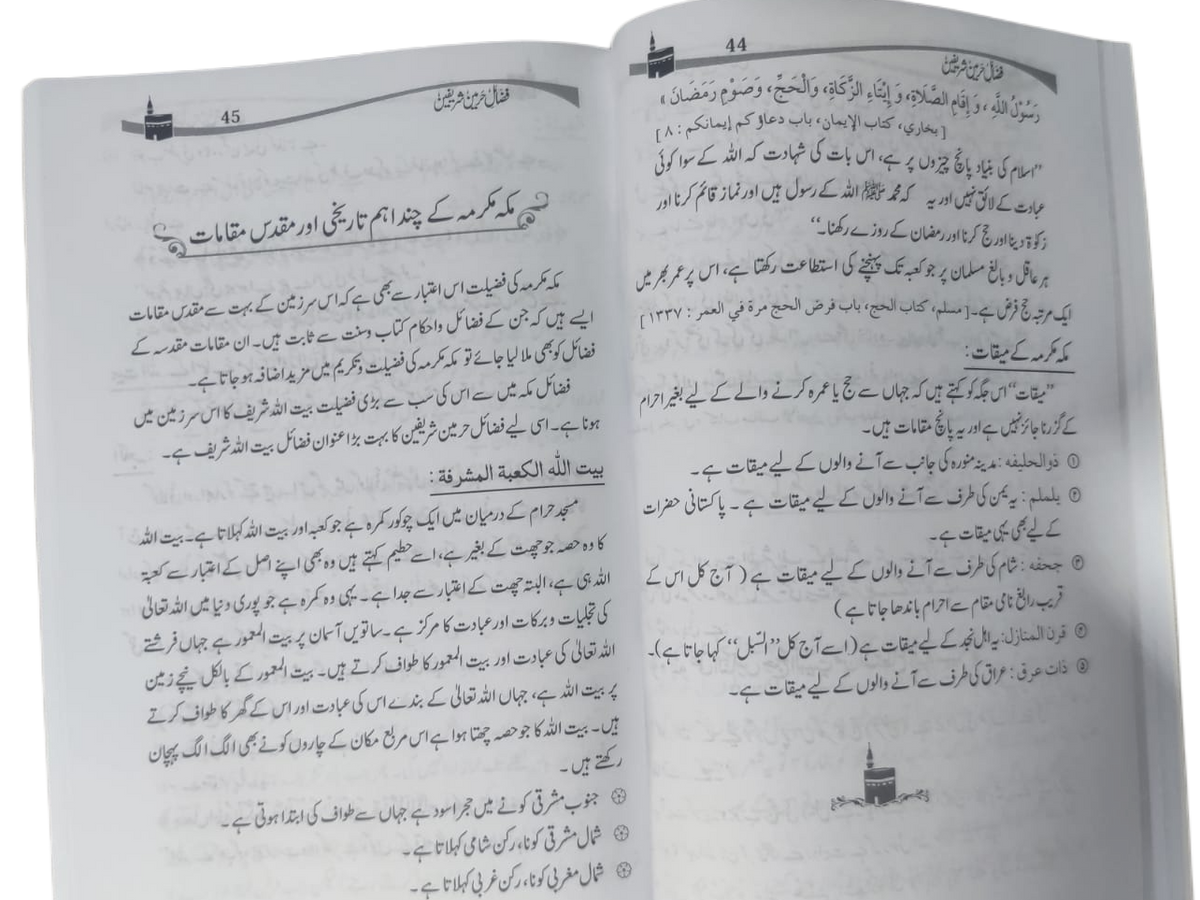 44
فضائل حرمین شریفین
رَسُوْلُ اللَّهِ ، وَ إِقَامِ الصَّلَاةِ، وَ إِيْتَاءِ الزَّكَاةِ، وَالْحَجِّ، وَصَوْمِ رَمَضَانَ »
[ بخاري، كتاب الإيمان، باب دعاؤكم إيمانكم : ٨ ]
”اسلام کی بنیاد پانچ چیزوں پر ہے، اس بات کی شہادت کہ اللہ کے سوا کوئی
عبادت کے لائق نہیں اور یہ کہ محمد ﷺ اللہ کے رسول ہیں اور نماز قائم کرنا اور
زکوٰۃ دینا اور حج کرنا اور رمضان کے روزے رکھنا۔“
ہر عاقل و بالغ مسلمان پر جو کعبہ تک پہنچنے کی استطاعت رکھتا ہے، اس پر عمر بھر میں
ایک مرتبہ حج فرض ہے۔ [ مسلم، كتاب الحج، باب فرض الحج مرة في العمر : ١٣٣٧ ]
مکہ مکرمہ کے میقات :
”میقات“ اس جگہ کو کہتے ہیں کہ جہاں سے حج یا عمرہ کرنے والے کے لیے بغیر احرام
کے گزرنا جائز نہیں ہے اور یہ پانچ مقامات ہیں۔
① ذوالحليفه : مدینہ منورہ کی جانب سے آنے والوں کے لیے میقات ہے ۔
② يلملم : یہ یمن کی طرف سے آنے والوں کے لیے میقات ہے ۔ پاکستانی حضرات
کے لیے بھی یہی میقات ہے۔
③ جحفه : شام کی طرف سے آنے والوں کے لیے میقات ہے ( آج کل اس کے
قریب رابغ نامی مقام سے احرام باندھا جاتا ہے )
④ قرن المنازل: یہ اہل نجد کے لیے میقات ہے ( اسے آج کل ”السَیل“ کہا جاتا ہے)۔
⑤ ذات عرق : عراق کی طرف سے آنے والوں کے لیے میقات ہے۔
45
فضائل حرمین شریفین
مکہ مکرمہ کے چند اہم تاریخی اور مقدس مقامات
مکہ مکرمہ کی فضیلت اس اعتبار سے بھی ہے کہ اس سرزمین کے بہت سے مقدس مقامات
ایسے ہیں کہ جن کے فضائل واحکام کتاب وسنت سے ثابت ہیں۔ ان مقامات مقدسہ کے
فضائل کو بھی ملا لیا جائے تو مکہ مکرمہ کی فضیلت وتکریم میں مزید اضافہ ہو جاتا ہے۔
فضائل مکہ میں سے اس کی سب سے بڑی فضیلت بیت اللہ شریف کا اس سرزمین میں
ہونا ہے۔ اسی لیے فضائل حرمین شریفین کا بہت بڑا عنوان فضائل بیت اللہ شریف ہے ۔
بيت اللّٰه الكعبة المشرفة :
مسجد حرام کے درمیان میں ایک چوکور کمرہ ہے جو کعبہ اور بیت اللہ کہلاتا ہے۔ بیت اللہ
کا وہ حصہ جو چھت کے بغیر ہے، اسے حطیم کہتے ہیں وہ بھی اپنے اصل کے اعتبار سے کعبۃ
اللہ ہی ہے، البتہ چھت کے اعتبار سے جدا ہے ۔ یہی وہ کمرہ ہے جو پوری دنیا میں اللہ تعالیٰ
کی تجلیات و برکات اور عبادت کا مرکز ہے ۔ ساتویں آسمان پر بیت المعمور ہے جہاں فرشتے
اللہ تعالیٰ کی عبادت اور بیت المعمور کا طواف کرتے ہیں۔ بیت المعمور کے بالکل نیچے زمین
پر بیت اللہ ہے، جہاں اللہ تعالیٰ کے بندے اس کی عبادت اور اس کے گھر کا طواف کرتے
ہیں۔ بیت اللہ کا جو حصہ چھتا ہوا ہے اس مربع مکان کے چاروں کونے بھی الگ الگ پہچان
رکھتے ہیں ۔
جنوب مشرقی کونے میں حجر اسود ہے جہاں سے طواف کی ابتدا ہوتی ہے ۔
شمال مشرقی کونا، رکن شامی کہلاتا ہے ۔
شمال مغربی کونا، رکن غربی کہلاتا ہے ۔